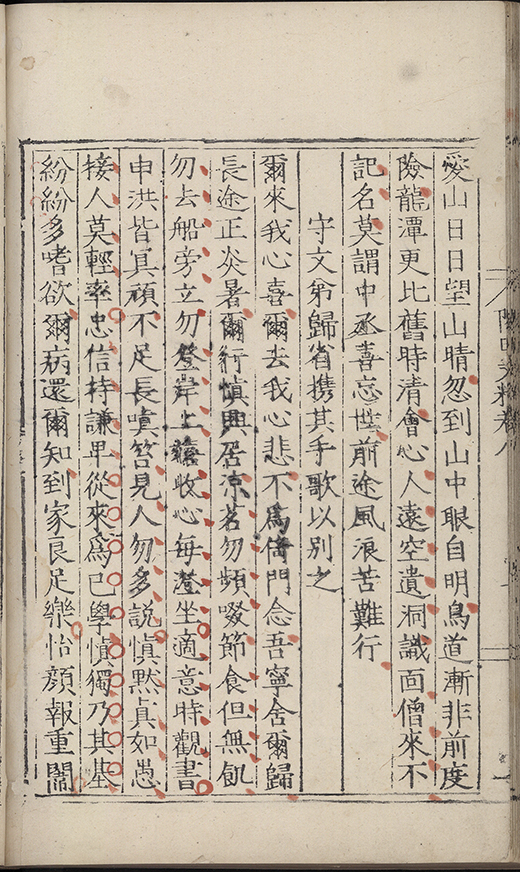 愛山日日望山晴忽到山中眼自明鳥道漸非前度
險龍潭更比舊時清會心人遠空遺洞識面僧來不
記名莫謂中丞喜忘世前途風浪苦難行
守文弟歸省携其手歌以别之
爾來我心喜爾去我心悲不為倚門念吾寧舍爾歸
長途正炎暑爾行慎興居凉茗勿頻啜節食但無飢
勿去船旁立勿登岸上嬉收心每澄坐適意時觀書
申洪皆冥頑不足長嗔笞見人勿多説慎黙真如愚
接人莫輕率忠信持謙卑從來為已學慎獨乃其基
紛紛多嗜欲爾病還爾知到家良足樂怡顔報重闈